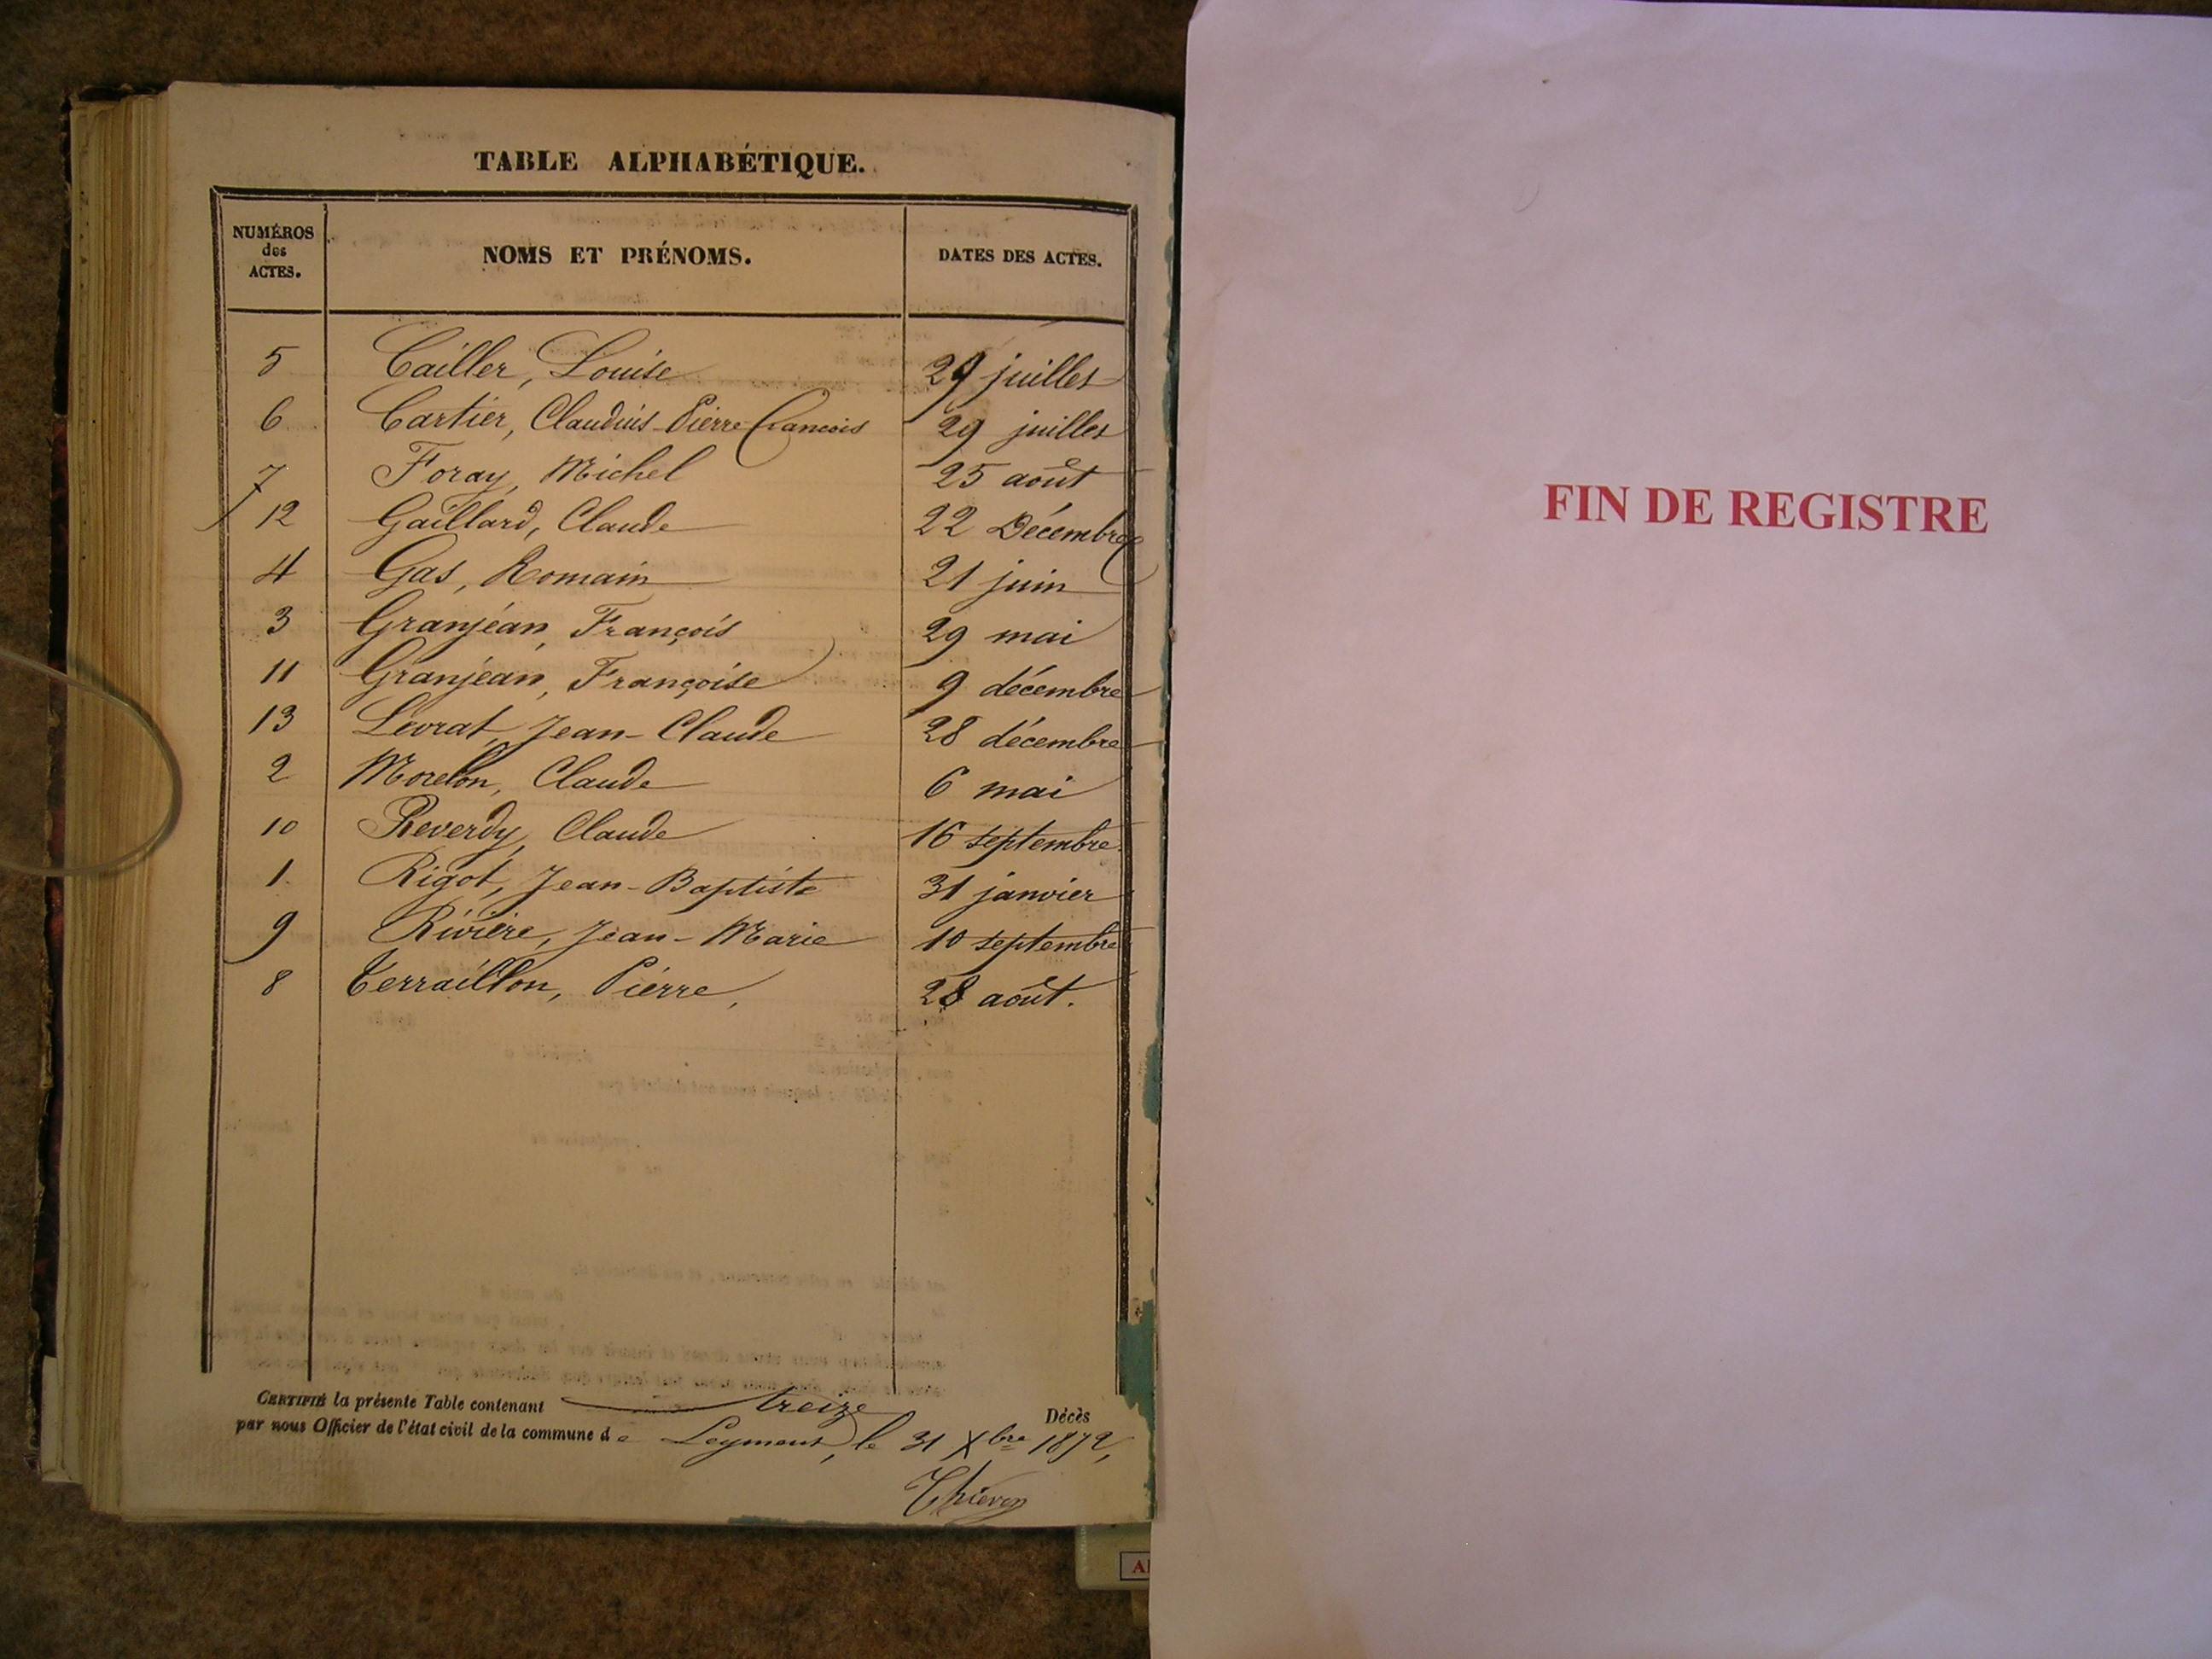 TABLE ALPHABÉTIQUE.
NUMÉROS des ACTES. NOMS ET PRÉNOMS. DATES DES ACTES.
5 Cailler, Louise 29 juillet
6 Cartier, Claudius-Pierre-François 29 juillet
7 Foray, Michel 25 août
12 Gaillard, Claude 22 Décembre
4 Gas, Romain 21 juin
3 Granjean, François 29 mai
11 Granjean, Françoise 9 décembre
13 Levrat, Jean-Claude 28 décembre
2 Morelon, Claude 6 mai
10 Reverdy, Claude 16 septembre
1 Rigot, Jean-Baptiste 31 janvier
9 Rivière, Jean-Marie 10 septembre
8 Terraillon, Pierre, 28 août.
CERTIFIÉ la présente Table contenant treize Décès
par nous Officier de l'état civil de la commune de Leyment, le 31 Xbre 1872,
FIN DE REGISTRE